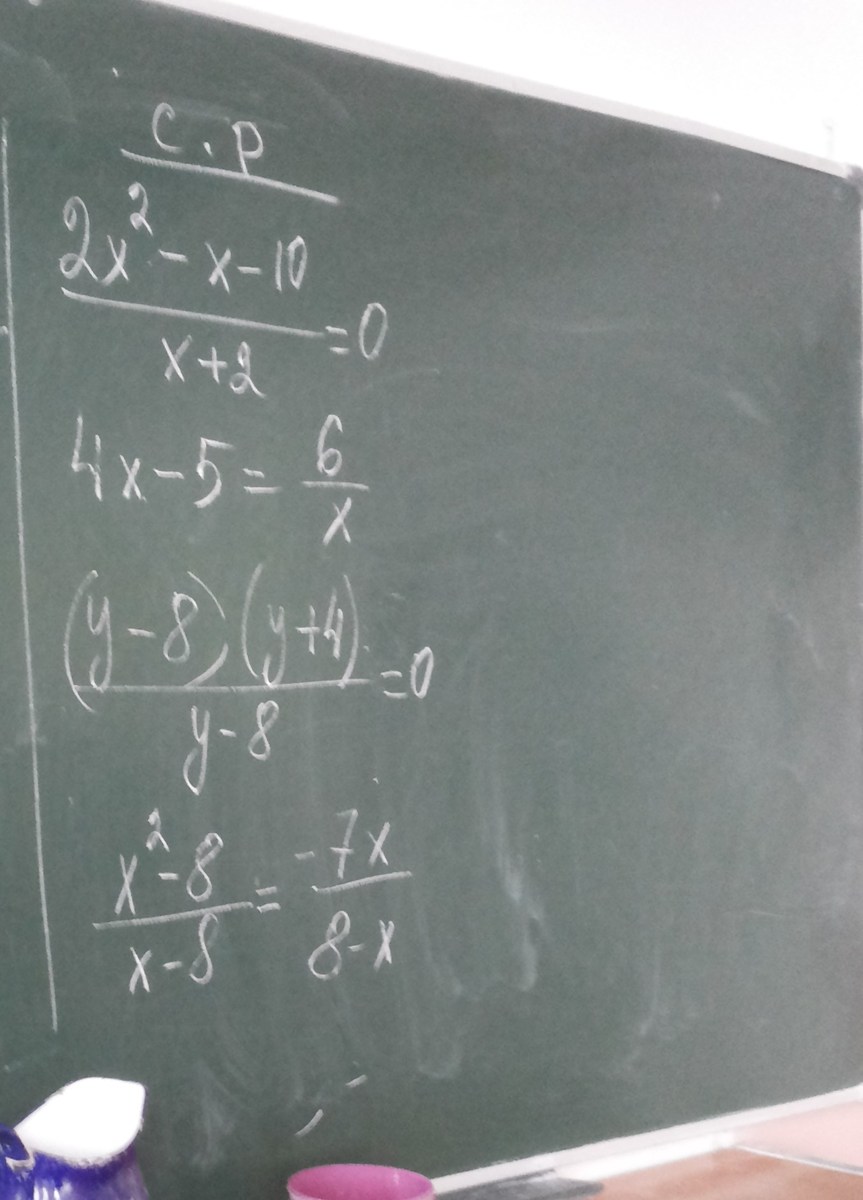 С.р
2x² - x - 10
x + 2
= 0
4x - 5 = 6/x
(y - 8)(y + 4)
y - 8
= 0
x² - 8
x - 8
=
-7x
8 - x